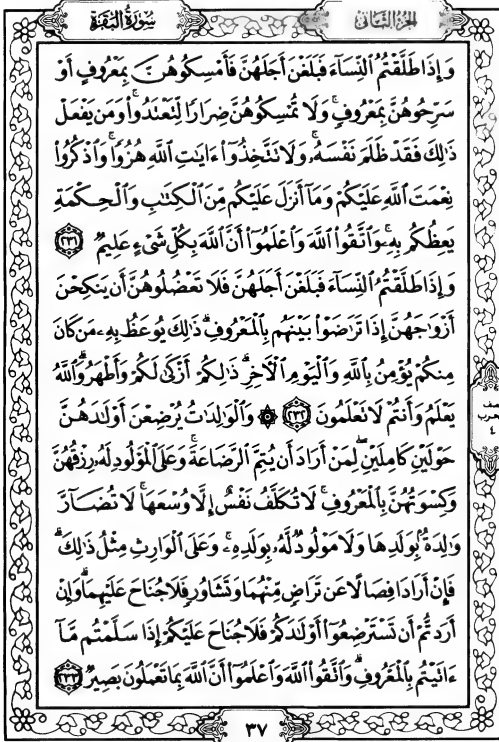 سُورَةُ البَقَرَةِ الجُزءُ الثَّانِي
وَإِذَا طَلَّقْتُمُ ٱلنِّسَآءَ فَبَلَغْنَ أَجَلَهُنَّ فَأَمْسِكُوهُنَّ بِمَعْرُوفٍ أَوْ
سَرِّحُوهُنَّ بِمَعْرُوفٍ ۚ وَلَا تُمْسِكُوهُنَّ ضِرَارًا لِّتَعْتَدُوا۟ ۚ وَمَن يَفْعَلْ
ذَٰلِكَ فَقَدْ ظَلَمَ نَفْسَهُۥ ۚ وَلَا تَتَّخِذُوٓا۟ ءَايَٰتِ ٱللَّهِ هُزُوًا ۚ وَٱذْكُرُوا۟
نِعْمَتَ ٱللَّهِ عَلَيْكُمْ وَمَآ أَنزَلَ عَلَيْكُم مِّنَ ٱلْكِتَٰبِ وَٱلْحِكْمَةِ
يَعِظُكُم بِهِۦ ۚ وَٱتَّقُوا۟ ٱللَّهَ وَٱعْلَمُوٓا۟ أَنَّ ٱللَّهَ بِكُلِّ شَىْءٍ عَلِيمٌ ٢٣١
وَإِذَا طَلَّقْتُمُ ٱلنِّسَآءَ فَبَلَغْنَ أَجَلَهُنَّ فَلَا تَعْضُلُوهُنَّ أَن يَنكِحْنَ
أَزْوَٰجَهُنَّ إِذَا تَرَٰضَوْا۟ بَيْنَهُم بِٱلْمَعْرُوفِ ۗ ذَٰلِكَ يُوعَظُ بِهِۦ مَن كَانَ
مِنكُمْ يُؤْمِنُ بِٱللَّهِ وَٱلْيَوْمِ ٱلْءَاخِرِ ۗ ذَٰلِكُمْ أَزْكَىٰ لَكُمْ وَأَطْهَرُ ۗ وَٱللَّهُ
يَعْلَمُ وَأَنتُمْ لَا تَعْلَمُونَ ٢٣٢ ۞ وَٱلْوَٰلِدَٰتُ يُرْضِعْنَ أَوْلَٰدَهُنَّ
حَوْلَيْنِ كَامِلَيْنِ ۖ لِمَنْ أَرَادَ أَن يُتِمَّ ٱلرَّضَاعَةَ ۚ وَعَلَى ٱلْمَوْلُودِ لَهُۥ رِزْقُهُنَّ
وَكِسْوَتُهُنَّ بِٱلْمَعْرُوفِ ۚ لَا تُكَلَّفُ نَفْسٌ إِلَّا وُسْعَهَا ۚ لَا تُضَآرَّ
وَٰلِدَةٌۢ بِوَلَدِهَا وَلَا مَوْلُودٌ لَّهُۥ بِوَلَدِهِۦ ۚ وَعَلَى ٱلْوَارِثِ مِثْلُ ذَٰلِكَ ۗ
فَإِنْ أَرَادَا فِصَالًا عَن تَرَاضٍ مِّنْهُمَا وَتَشَاوُرٍ فَلَا جُنَاحَ عَلَيْهِمَا ۗ وَإِنْ
أَرَدتُّمْ أَن تَسْتَرْضِعُوٓا۟ أَوْلَٰدَكُمْ فَلَا جُنَاحَ عَلَيْكُمْ إِذَا سَلَّمْتُم مَّآ
ءَاتَيْتُم بِٱلْمَعْرُوفِ ۗ وَٱتَّقُوا۟ ٱللَّهَ وَٱعْلَمُوٓا۟ أَنَّ ٱللَّهَ بِمَا تَعْمَلُونَ بَصِيرٌ ٢٣٣
٣٧